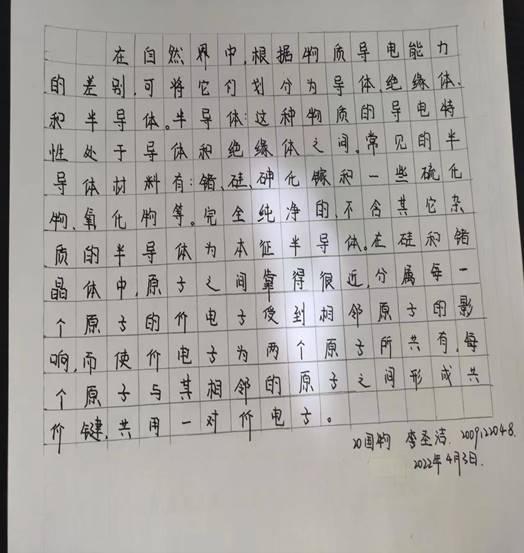 在自然界中,根据物质导电能力
的差别,可将它们划分为导体绝缘体、
和半导体。半导体:这种物质的导电特
性处于导体和绝缘体之间。常见的半
导体材料有:锗、硅、砷化镓和一些硫化
物、氧化物等。完全纯净的,不含其它杂
质的半导体为本征半导体。在硅和锗
晶体中,原子之间靠得很近,分属每一
个原子的价电子受到相邻原子的影
响,而使价电子为两个原子所共有,每
个原子与其相邻的原子之间形成共
价键,共用一对价电子。
20国物 李圣洁 2009122048.
2022年4月3日.